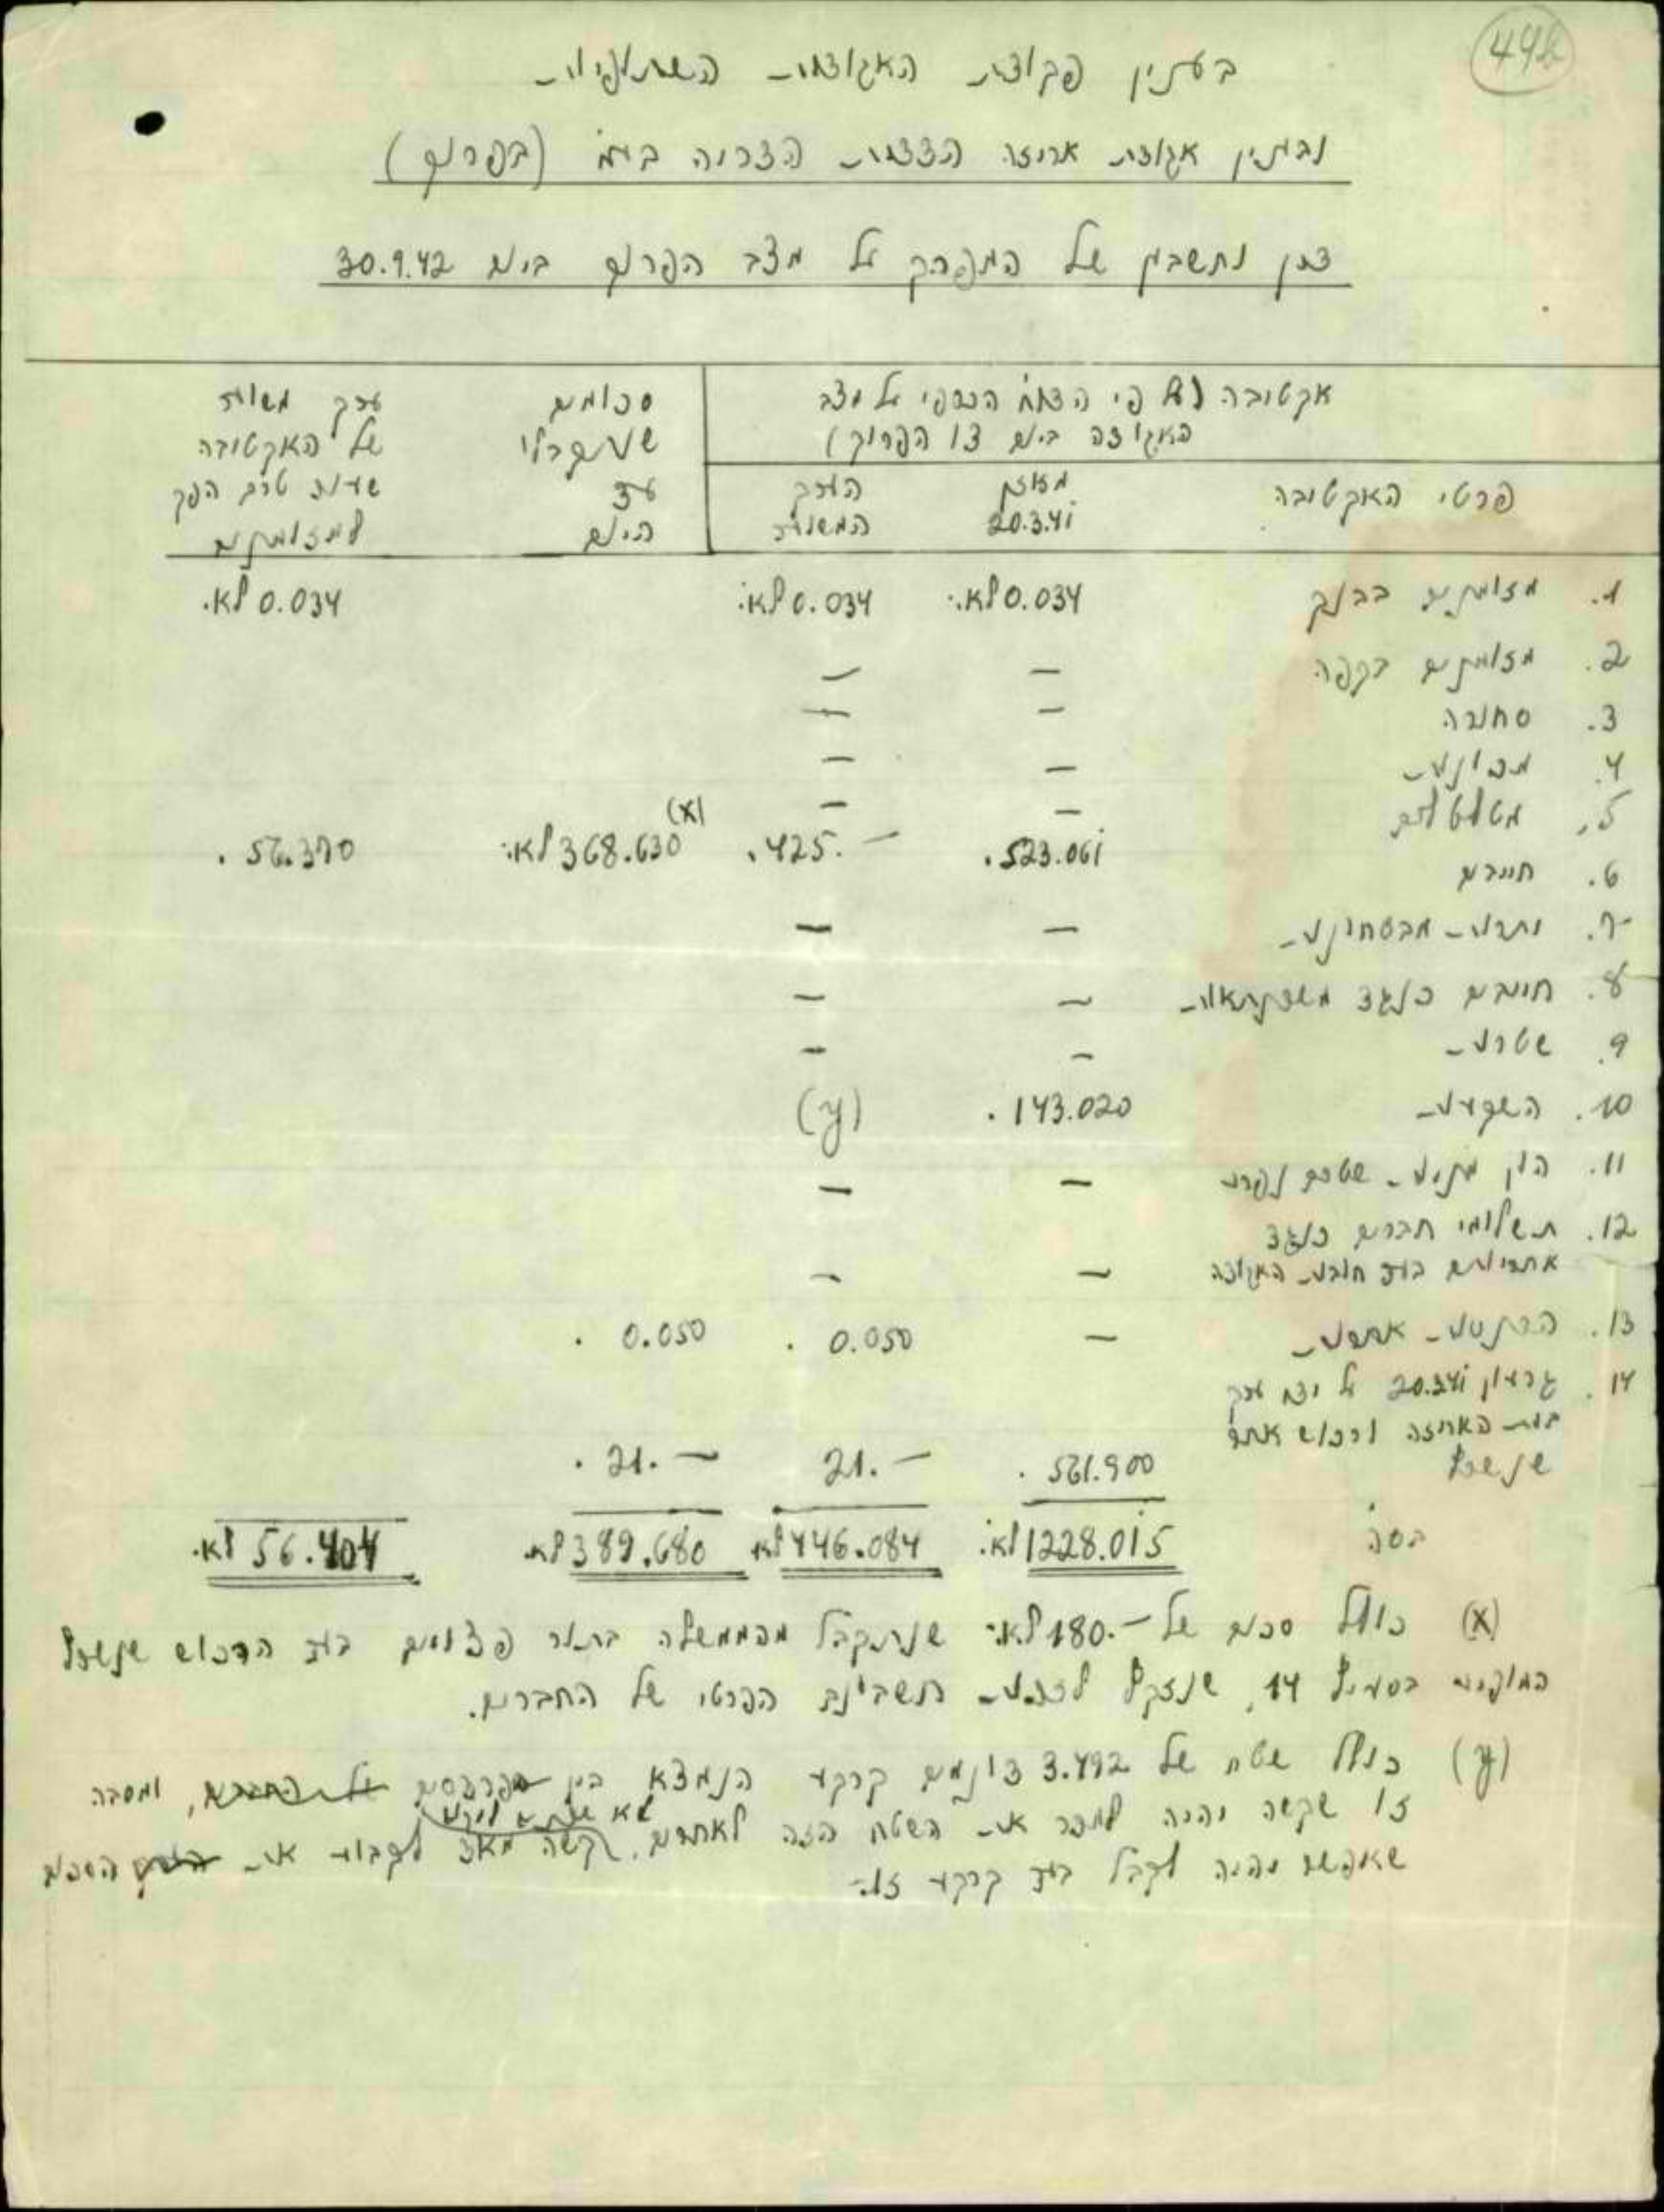 44א
בענין פקודת האגודות השתופיות
ובענין אגודת אריזה הדדית בע"מ (בפרוק)
דין וחשבון של המפרק על מצב הפרוק ביום 30.9.42
אקטיבה (על פי הדו"ח הכספי על מצב
האגודה ביום צו הפרוק)
סכומים
שנתקבלו
עד
היום
ערך משוער
של האקטיבה
שעוד טרם הפך
למזומנים
פרטי האקטיבה
מאזן
20.3.41
הערך
המשוער
1. מזומנים בבנק 0.034 לא"י 0.034 לא"י 0.034 לא"י
2. מזומנים בקפה — —
3. סחורה — —
4. מכונות — —
5. מטלטלים — —
6. חייבים 523.061 425.— (x) 368.630 לא"י 56.370
7. יתרות מבטחות — —
8. חייבים כנגד משכנתאות — —
9. שטרות — —
10. השקעות 143.020 (y)
11. הון מניות שטרם נפרע — —
12. תשלומי חברים כנגד
אחריותם בעד חובות האגודה — —
13. הכנסות אחרות — 0.050 0.050
14. גרעון 20.3.41 על ידי ערך
בית האריזה ורכוש אחר
שנשרף 561.900 21.— 21.—
הסה"כ 1228.015 לא"י 446.084 לא"י 389.680 לא"י 56.404 לא"י
(x) כולל סכום של 180.— לא"י שנתקבל מהממשלה בתור פצויים בעד הרכוש שנשרף
המופיע בסעיף 14, שנזקף לזכות חשבונם הפרטי של החברים.
(y) כולל שטח של 3.492 דונמים קרקע הנמצא בין הפרדסים של החברים, ומסבה
זו שקשה יהיה למכר את השטח הזה לאחרים, קשה מאד לקבוע את הסכום
שאפשר יהיה לקבל בעד קרקע זו.